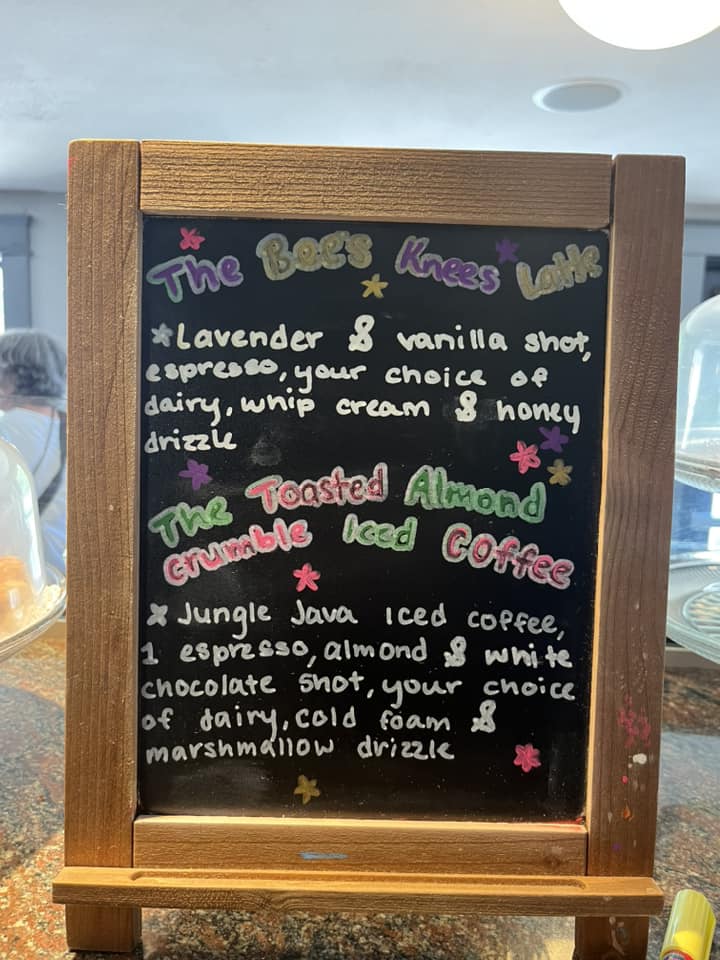 The Bee's Knees Latte
*Lavender & vanilla shot,
espresso, your choice of
dairy, whip cream & honey
drizzle
The Toasted Almond
crumble iced Coffee
* Jungle Java iced coffee,
1 espresso, almond & white
chocolate shot, your choice
of dairy, cold foam &
marshmallow drizzle